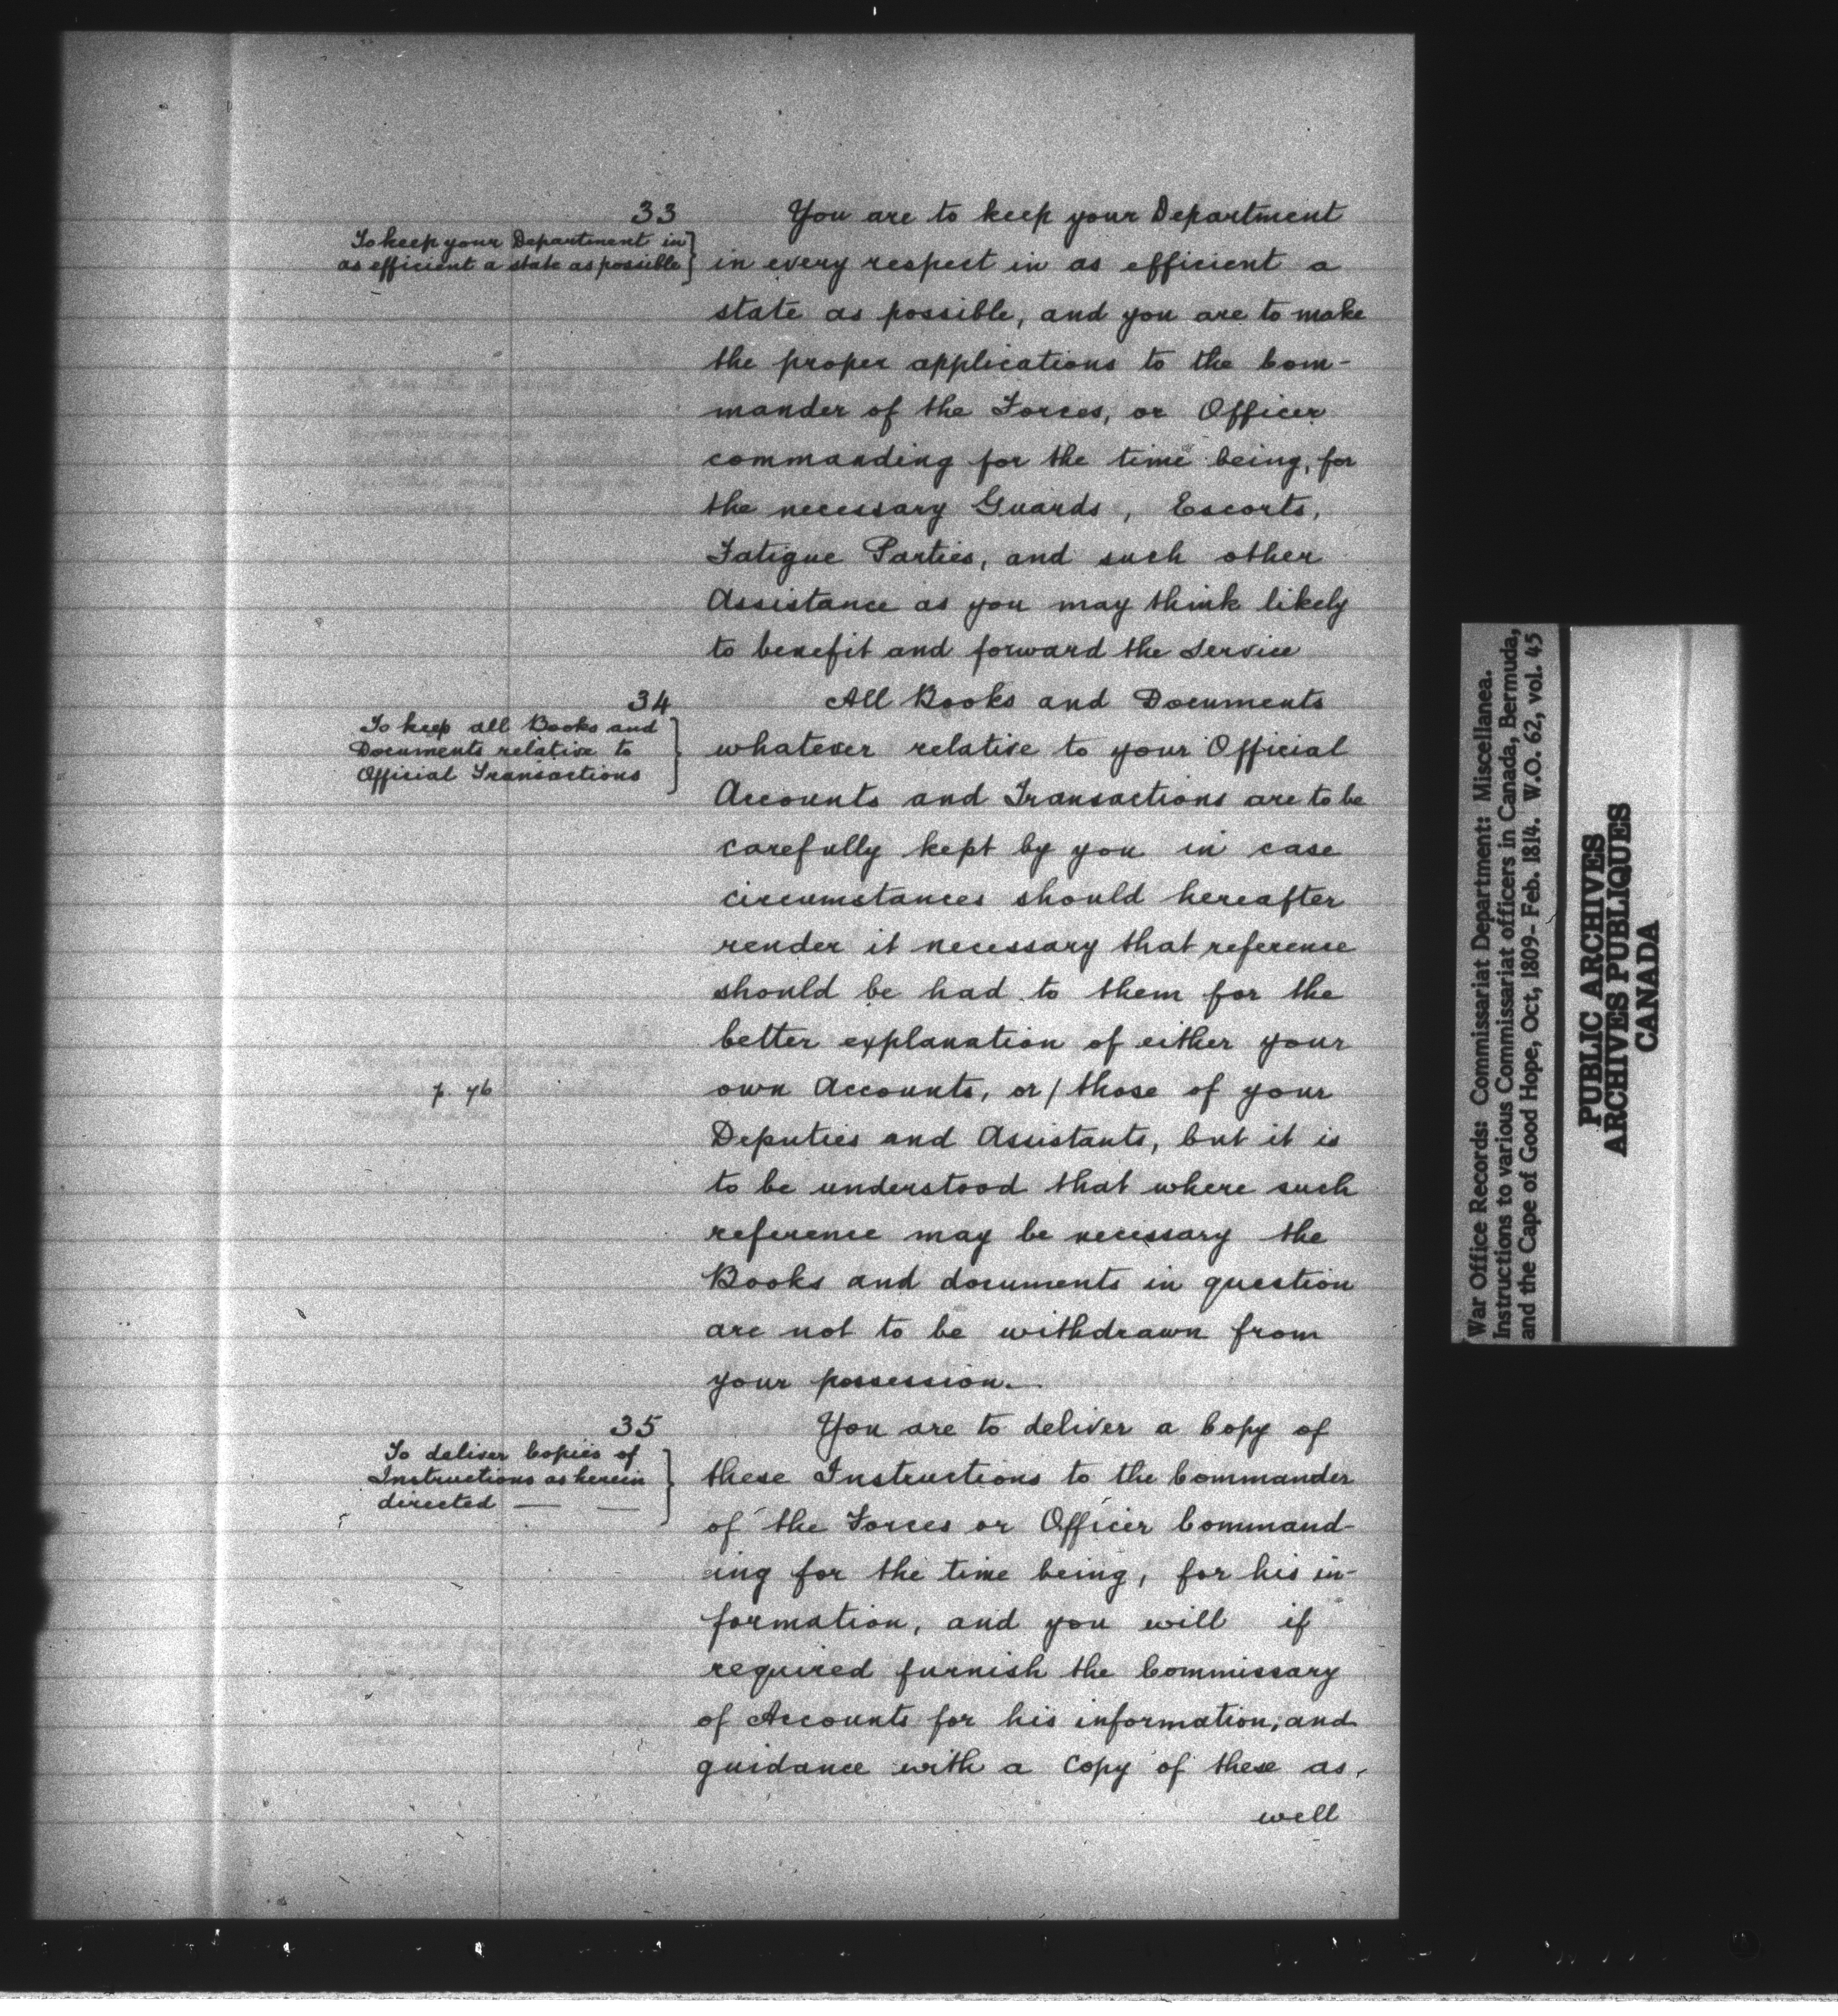 33
To keep your Department in
as efficient a state as possible
You are to keep your Department
in every respect in as efficient a
state as possible, and you are to make
the proper applications to the Com-
mander of the Forces, or Officer
commanding for the time being, for
the necessary Guards, Escorts,
Fatigue Parties, and such other
Assistance as you may think likely
to benefit and forward the Service
34
To keep all Books and
Documents relative to
Official Transactions
All Books and Documents
whatever relative to your Official
Accounts and Transactions are to be
carefully kept by you in case
circumstances should hereafter
render it necessary that reference
should be had to them for the
better explanation of either your
p. 76
own Accounts, or / those of your
Deputies and Assistants, but it is
to be understood that where such
reference may be necessary the
Books and documents in question
are not to be withdrawn from
your possession.
35
To deliver Copies of
Instructions as herein
directed — —
You are to deliver a Copy of
these Instructions to the Commander
of the Forces or Officer Command-
ing for the time being, for his in-
formation, and you will if
required furnish the Commissary
of Accounts for his information, and
guidance with a Copy of these as
well
War Office Records: Commissariat Department: Miscellanea.
Instructions to various Commissariat officers in Canada, Bermuda,
and the Cape of Good Hope, Oct, 1809- Feb. 1814. W.O. 62, vol. 45
PUBLIC ARCHIVES
ARCHIVES PUBLIQUES
CANADA